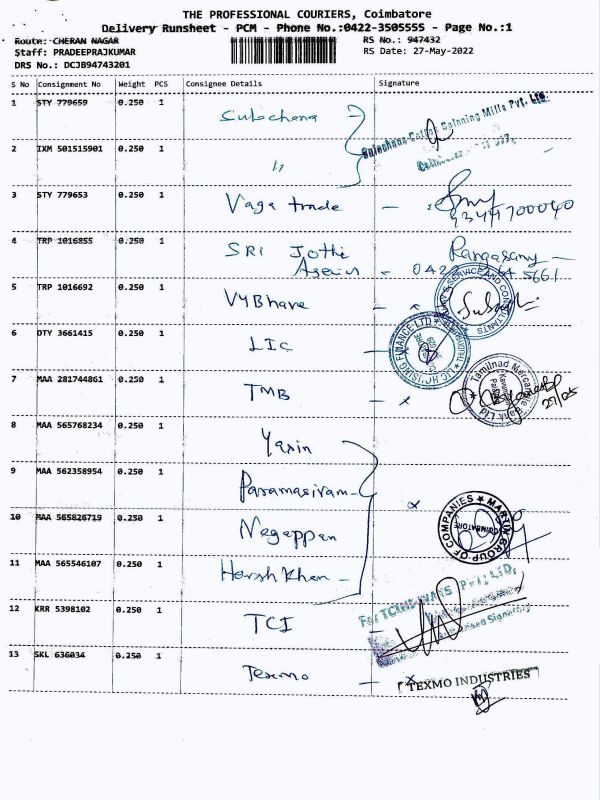 THE PROFESSIONAL COURIERS, Coimbatore
Delivery Runsheet - PCM - Phone No.:0422-3505555 - Page No.:1
Route: CHERAN NAGAR RS No.: 947432
Staff: PRADEEPRAJKUMAR RS Date: 27-May-2022
DRS No.: DCJB94743201
S No Consignment No Weight PCS Consignee Details Signature
1 STY 779659 0.250 1 Sulochana Sulochana Cotton Spinning Mills Pvt. Ltd.
2 IXM 501515901 0.250 1 "
3 STY 779653 0.250 1 Vaga trade -
4 TRP 1016855 0.250 1 SRI Jothi Rangasamy
5 TRP 1016692 0.250 1 VYBhava SERVICE AND CONSULTANTS
6 DTY 3661415 0.250 1 LIC LIC HOUSING FINANCE LTD
7 MAA 281744861 0.250 1 TMB - x Tamilnad Mercantile Bank Ltd 27/05
8 MAA 565768234 0.250 1 Yasin
9 MAA 562358954 0.250 1 Paramasivam
10 MAA 565826719 0.250 1 Nagappan MARTIN GROUP OF COMPANIES COIMBATORE
11 MAA 565546107 0.250 1 Harsh Khan -
12 KRR 5398102 0.250 1 TCI Authorised Signatory
13 SKL 636034 0.250 1 Texmo - x TEXMO INDUSTRIES